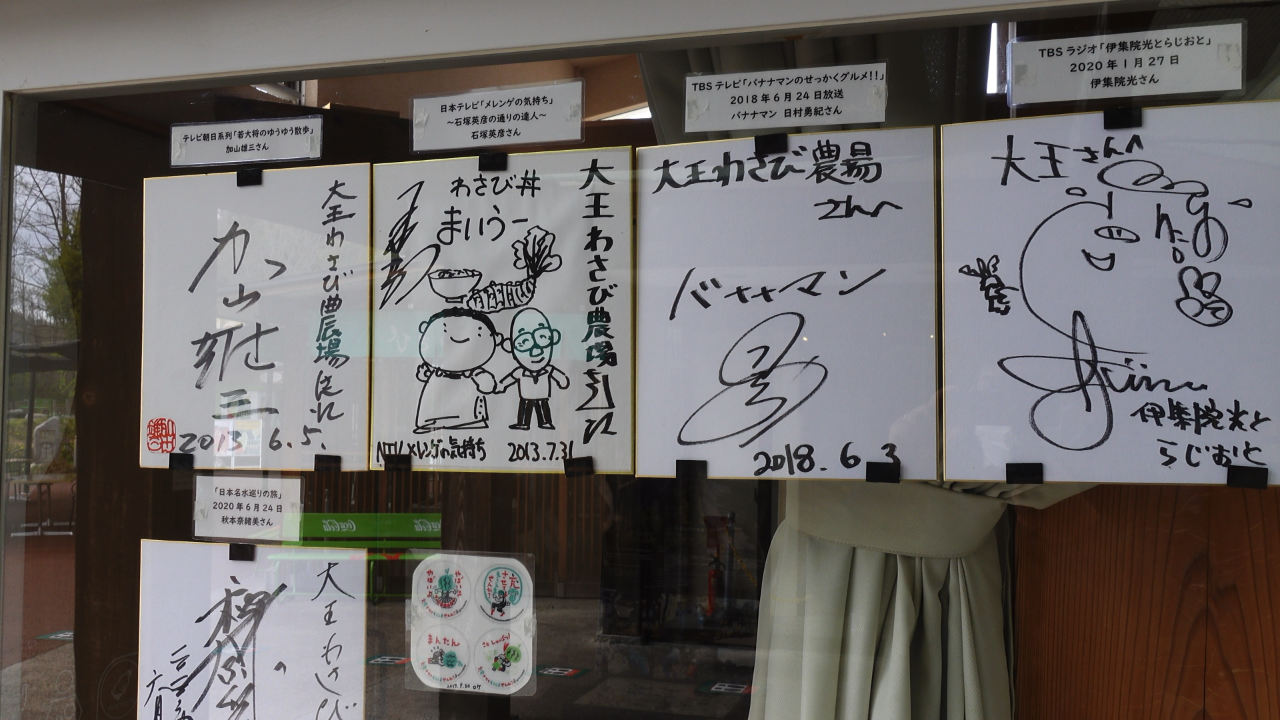 テレビ朝日系列「若大将のゆうゆう散歩」
加山雄三さん
大王わさび農場さん江
加山雄三
2013 6.5.
日本テレビ「メレンゲの気持ち」
～石塚英彦の通りの達人～
石塚英彦さん
大王わさび農場さん江
わさび丼
まいうー
NTV メレンゲの気持ち 2013.7.31
TBSテレビ「バナナマンのせっかくグルメ!!」
2018年6月24日放送
バナナマン 日村勇紀さん
大王わさび農場
さんへ
バナナマン
2018.6 3
TBSラジオ「伊集院光とらじおと」
2020年1月27日
伊集院光さん
大王さんへ
伊集院光と
らじおと
「日本名水巡りの旅」
2020年6月24日
秋本奈緒美さん
大王わさび
Coca-Cola
まんたん